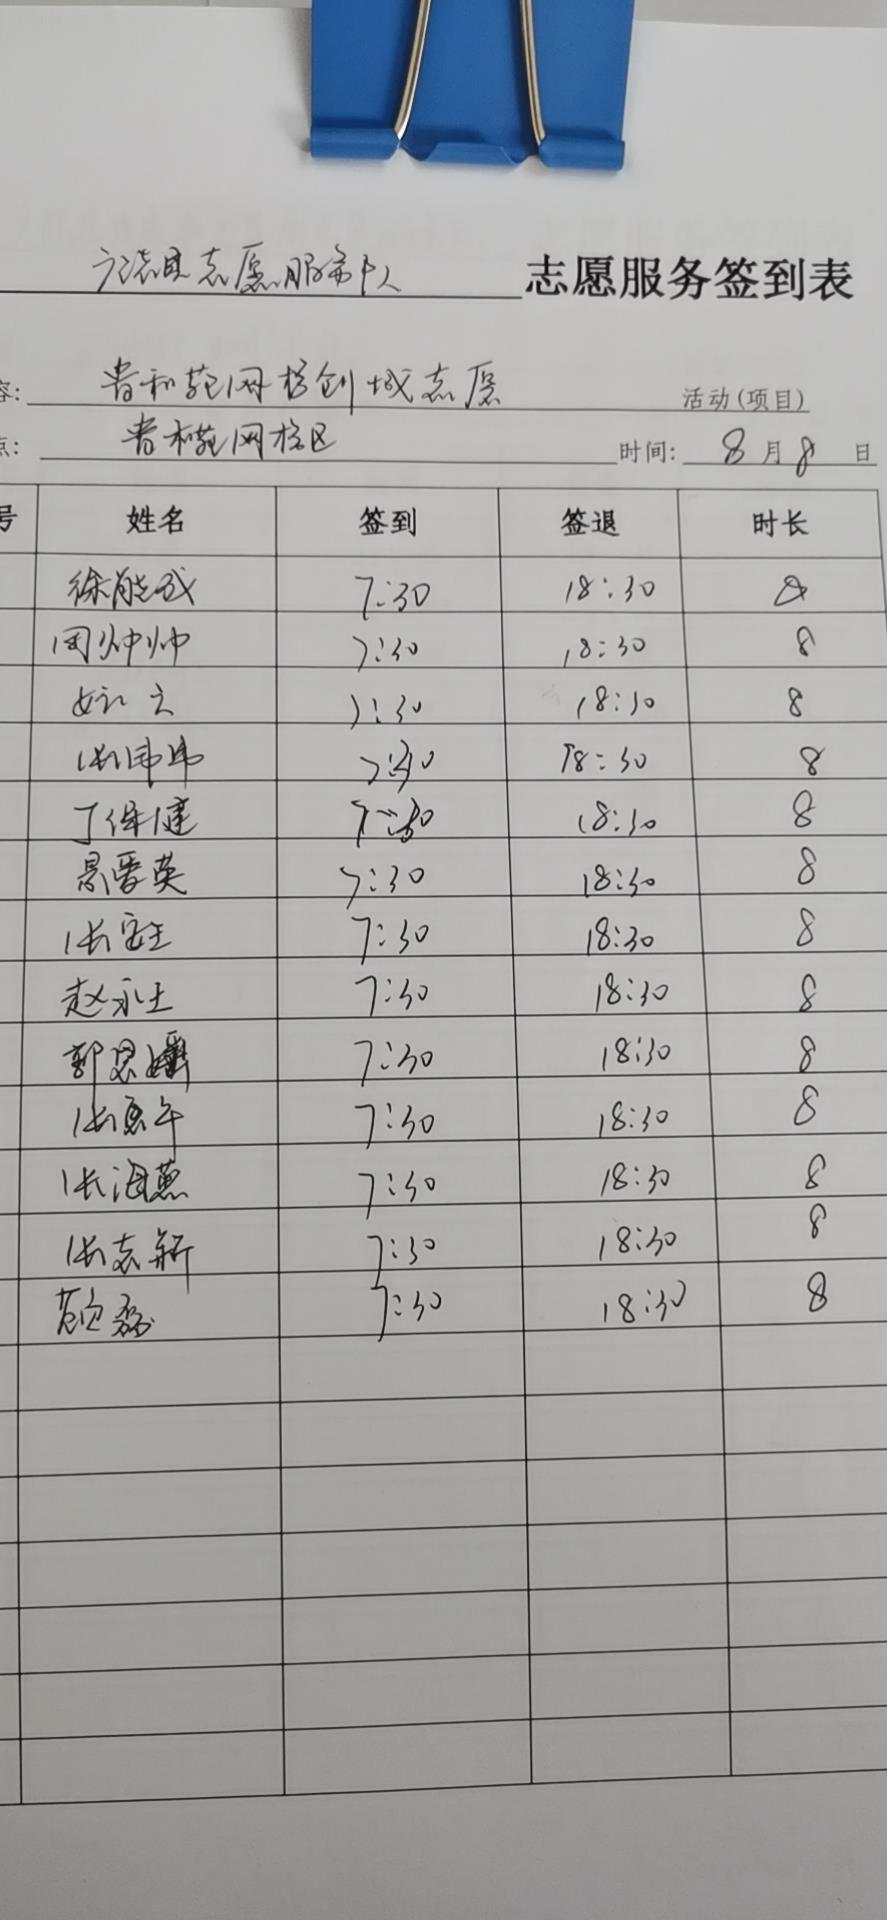 志愿服务队 志愿服务签到表
容: 贵和苑网格创城志愿 活动(项目)
点: 贵和苑网格区 时间: 8月8日
号 姓名 签到 签退 时长
徐能成 7:30 18:30 8
周帅帅 7:30 18:30 8
7:30 18:30 8
张伟伟 7:30 18:30 8
丁保健 7:30 18:30 8
晋英 7:30 18:30 8
张 7:30 18:30 8
赵永 7:30 18:30 8
郭思 7:30 18:30 8
张 7:30 18:30 8
张海燕 7:30 18:30 8
张志新 7:30 18:30 8
范磊 7:30 18:30 8